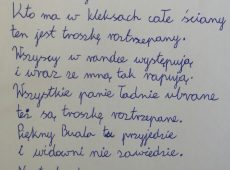 Kto ma w kleksach całe ściany
ten jest troszkę roztrzepany.
Wszyscy w randce występują
i wraz ze mną tak rapują.
Wszystkie panie ładnie ubrane
też są, troszkę roztrzepane.
Piękny Buala tu przyjedzie
i widowni nie zawiedzie.